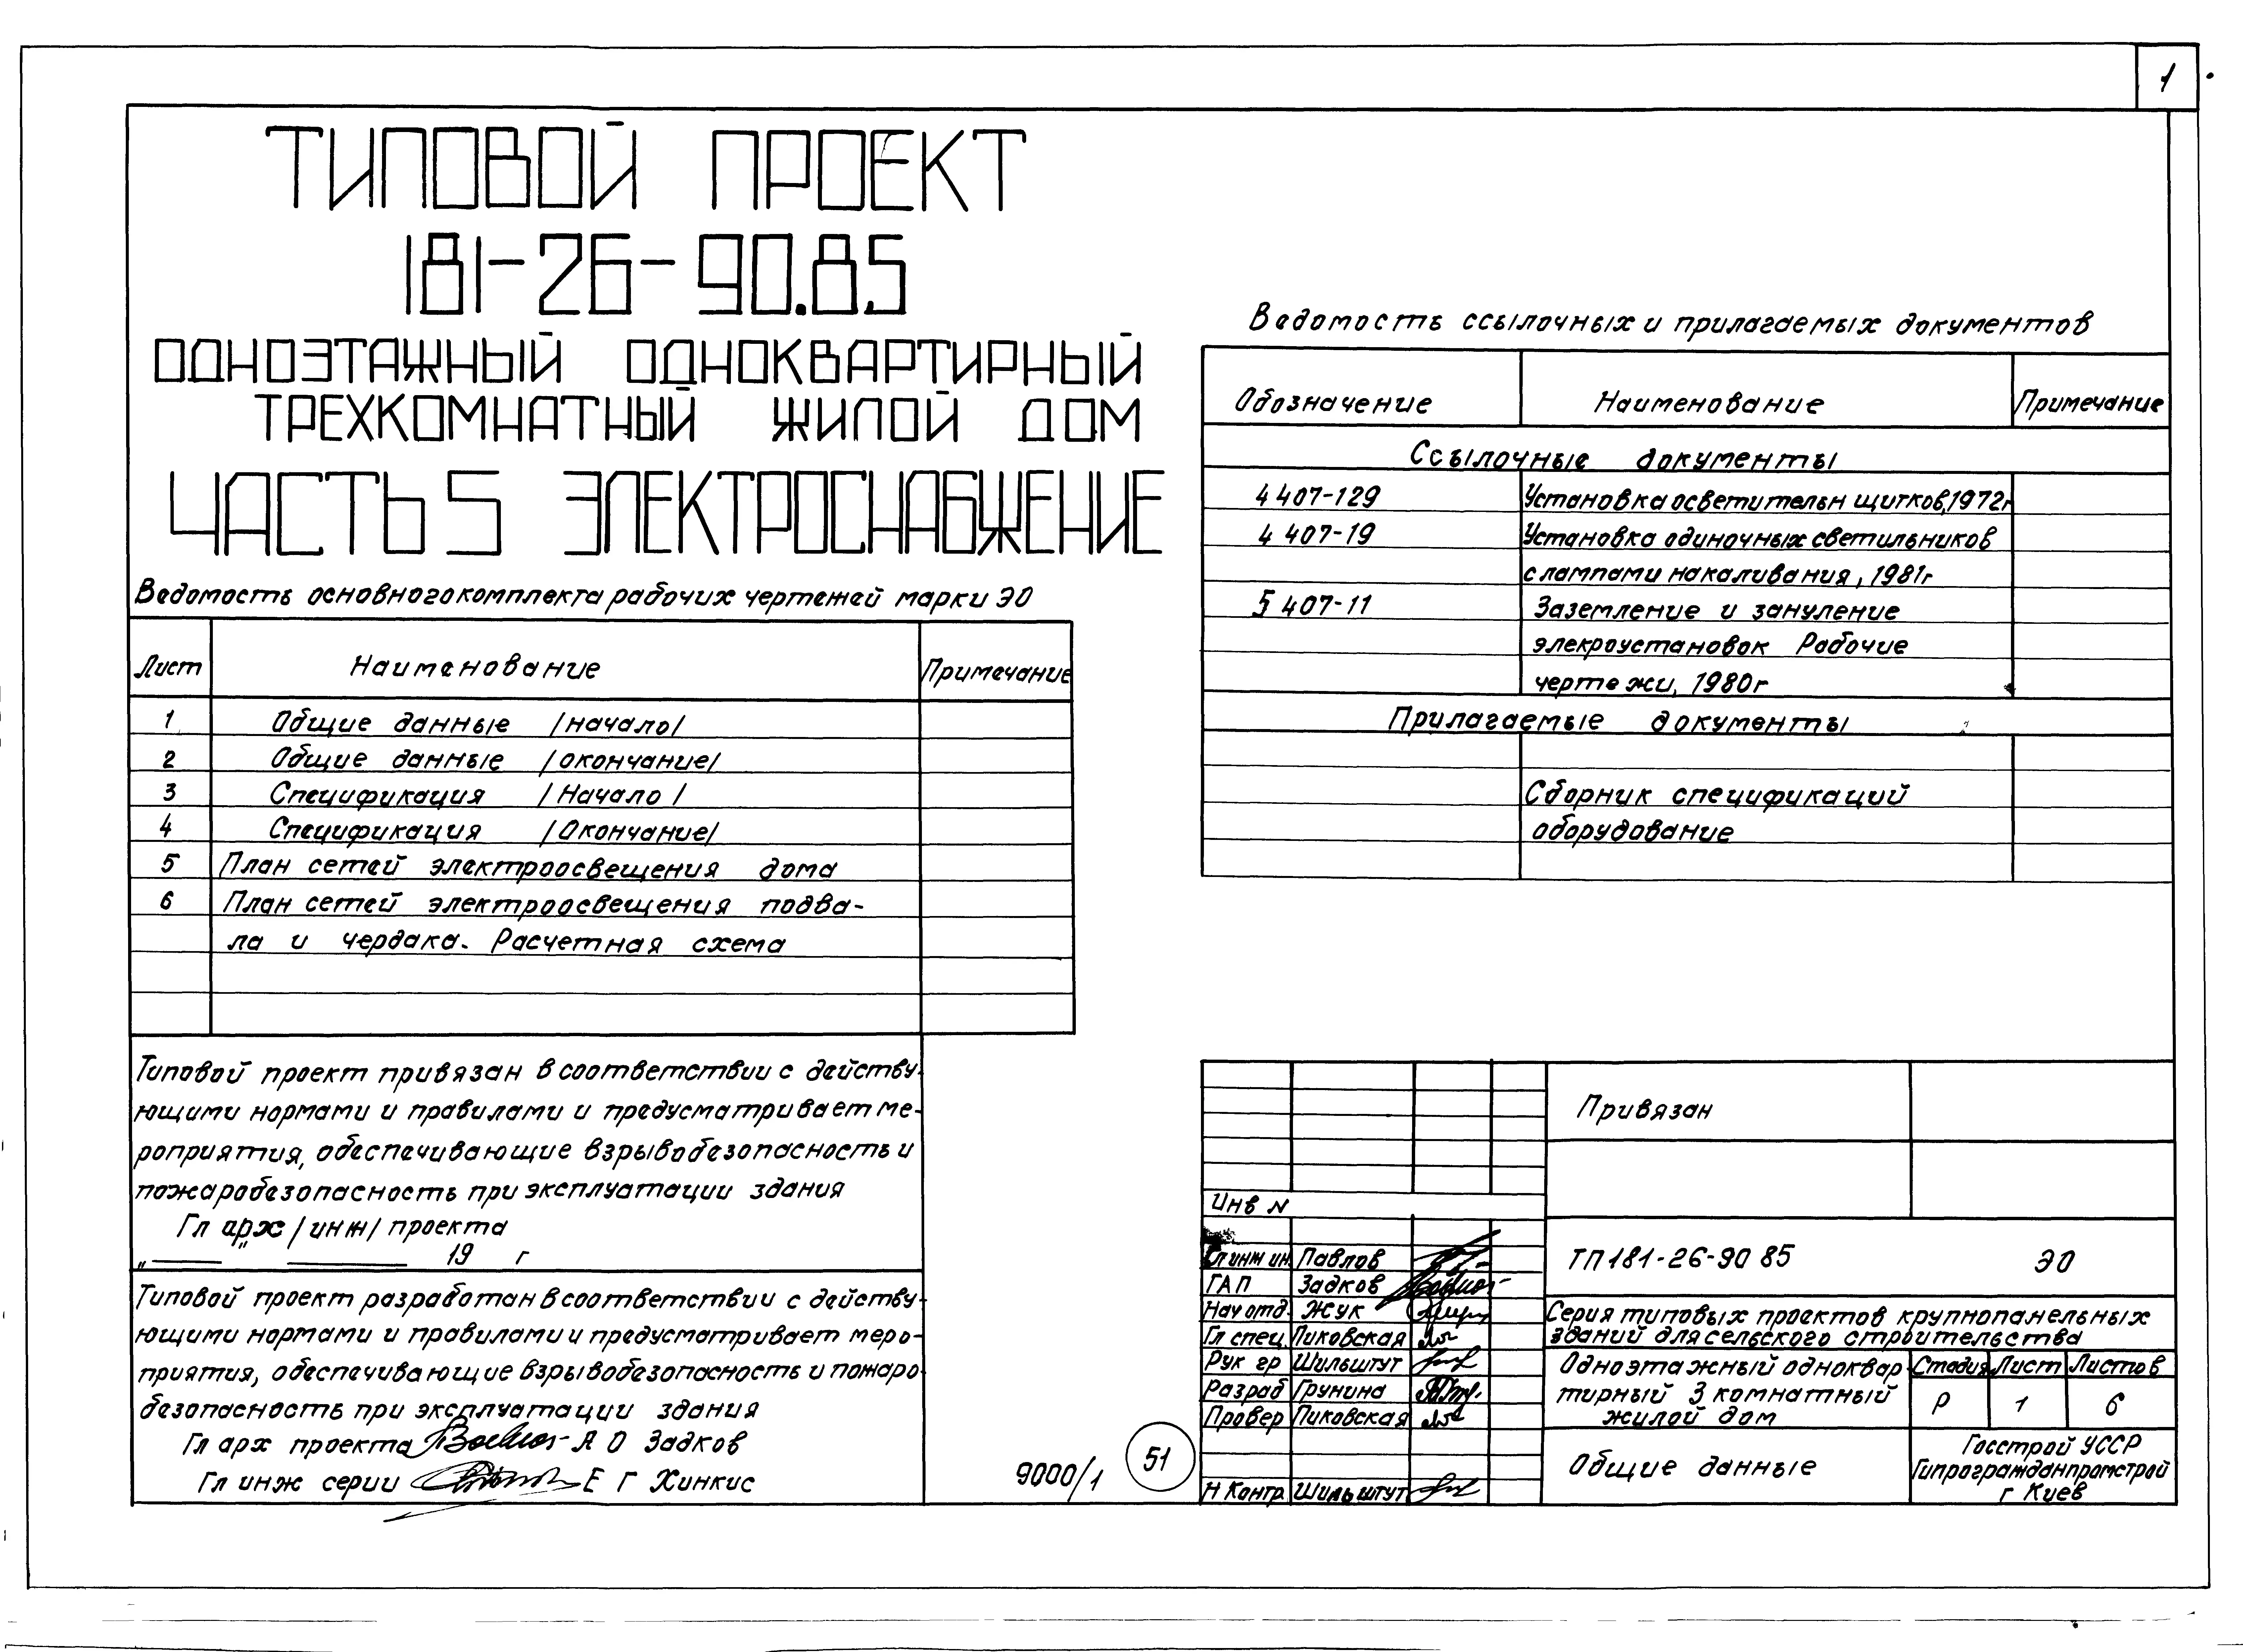 1
ТИПОВОЙ ПРОЕКТ
181-26-90.85
ОДНОЭТАЖНЫЙ ОДНОКВАРТИРНЫЙ
ТРЕХКОМНАТНЫЙ ЖИЛОЙ ДОМ
ЧАСТЬ 5 ЭЛЕКТРОСНАБЖЕНИЕ
Ведомость основного комплекта рабочих чертежей марки ЭО
Лист Наименование Примечание
1 Общие данные /начало/
2 Общие данные /окончание/
3 Спецификация /Начало/
4 Спецификация /Окончание/
5 План сетей электроосвещения дома
6 План сетей электроосвещения подва-
ла и чердака. Расчетная схема
Типовой проект привязан в соответствии с действу-
ющими нормами и правилами и предусматривает ме-
роприятия, обеспечивающие взрывобезопасность и
пожаробезопасность при эксплуатации здания
Гл арх /инж/ проекта
„ ____ " ________ 19 г
Типовой проект разработан в соответствии с действу-
ющими нормами и правилами и предусматривает меро-
приятия, обеспечивающие взрывобезопасность и пожаро-
безопасность при эксплуатации здания
Гл арх проекта А О Задков
Гл инж серии Е Г Хинкис
9000/1
51
Ведомость ссылочных и прилагаемых документов
Обозначение Наименование Примечание
Ссылочные документы
4 407-129 Установка осветительн щитков, 1972г
4 407-19 Установка одиночных светильников
с лампами накаливания, 1981г
5 407-11 Заземление и зануление
элекроустановок Рабочие
чертежи, 1980г
Прилагаемые документы
Сборник спецификаций
оборудование
Привязан
Инв N
Гл инж ин. Павлов
ГАП Задков
Нач отд. Жук
Гл спец. Пиковская
Рук гр Шильштут
Разраб Грунина
Провер Пиковская
Н Контр Шильштут
ТП 181-26-90 85 ЭО
Серия типовых проектов крупнопанельных
зданий для сельского строительства
Одноэтажный одноквар-
тирный 3 комнатный
жилой дом
Стадия Лист Листов
Р 1 6
Общие данные
Госстрой УССР
Гипрогражданпромстрой
г Киев